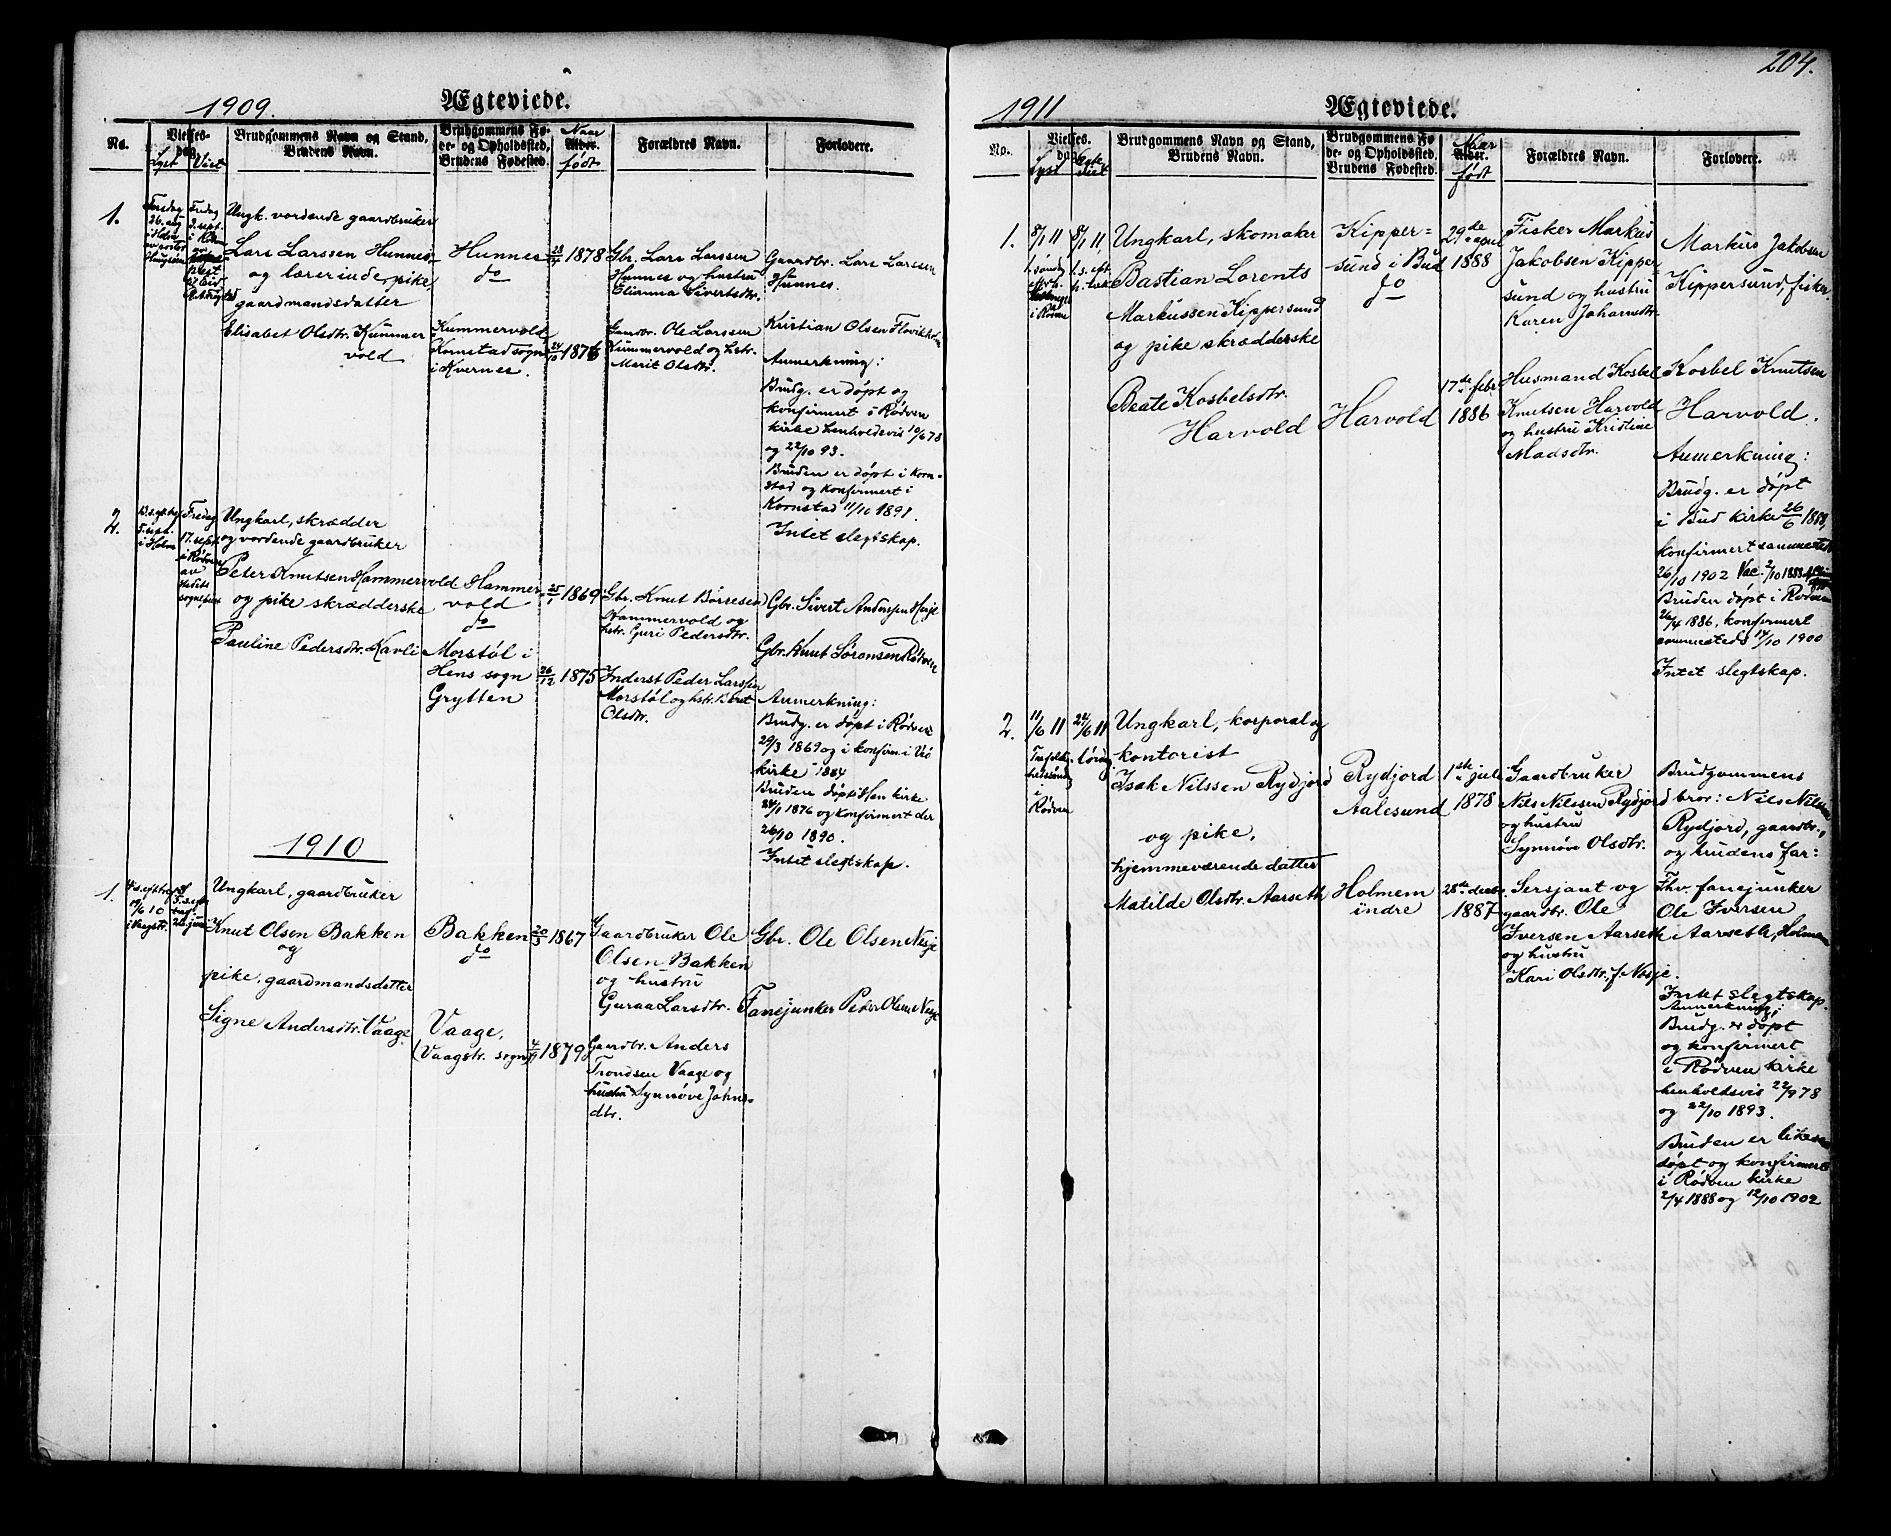 204.
1909.
Ægteviede.
No.
Vielses-
dag
Lyst
Viet
Brudgommens Navn og Stand,
Brudens Navn.
Brudgommens Fø-
de- og Opholdssted,
Brudens Fødested.
Naar
Alder.
født
Forældres Navn.
Forlovere.
1.
Torsdag
26. aug
Fredag
3. sept.
Ungk. vordende gaardbruker
Lars Larssen Hunnes
og lærerinde, pike
gaardmandsdatter
Elisabet Olsdtr. Kummer
vold
Hunnes
do
Kummervold
Kornstad sogn
i Kvernes.
1878
24/10 1876
Gbr. Lars Larssen
Hunnes og hustru
Elianna Sivertsdtr.
Gaardbr. Ole Larssen
Kummervold og hstr.
Marit Olsdtr.
Gaardbr. Lars Larssen
Hunnes.
Kristian Olsen Flovikholm
Anmerkning:
Brudg. er døpt og
konfirmert i Rødven
kirke henholdsvis 10/6 78
og 22/10 93.
Bruden er døpt i Korn-
stad og konfirmert i
Kornstad 11/10 1891.
Intet slegtskap.
2.
13. s. e. tref
5. sept.
i Holm
Fredag
17. sept.
i Rødven
av
stedets
sogneprest
Ungkarl, skrædder
og vordende gaardbruker
Peter Knutsen Hammervold
og pike skrædderske
Pauline Pedersdtr. Kavli
Hammer-
vold
do
Morstøl i
Hens sogn
Grytten
25/1 1869
26/12 1875
Gbr. Knut Børresen
Hammervold og
hstr. Guri Pedersdtr.
Inderst Peder Larssen
Morstøl og hstr. Beret
Olsdtr.
Gbr. Sivert Andersen Herje
Gbr. Knut Sørensen Rødven
Anmerkning:
Brudg. er døpt i Rødven
29/3 1869 og i konfirm. i Vö
kirke 1884
Bruden døpt i Hen kirke
28/1 1876 og konfirmert der
26/10 1890.
Intet slegtskap.
1910
1.
4. s. eft. tref
19/6 10
i Vaagstr.
Ungkarl, gaardbruker
Knut Olsen Bakken
og
pike, gaardmandsdatter
Signe Andersdtr. Vaage
Bakken
do
Vaage,
(Vaagstr. sogn)
20/3 1867
1879
Gaardbruker Ole
Olsen Bakken
og hustru
Guraa Larsdtr.
Gaardbr. Anders
Trondsen Vaage og
hustru Synnøve Johns-
dtr.
Gbr. Ole Olsen Nesje
Fanejunker Peder Olsen Nesje
1911
Ægteviede.
No.
Vielses-
dag
Lyst
Ægte
viet
Brudgommens Navn og Stand,
Brudens Navn.
Brudgommens Fø-
de- og Opholdssted,
Brudens Fødested.
Naar
Alder.
født
Forældres Navn.
Forlovere.
1.
8/1 11
1. søndag
i Rødven
8/1 11
1. s. eft.
Ungkarl, skomaker
Bastian Lorents
Markussen Kippersund
og pike skrædderske
Beate Kosbelsdtr.
Harvold
Kipper-
sund i Bud
do
Harvold
29de
1888
17de febr
1886
Fisker Markus
Jakobsen Kipper-
sund og hustru
Karen Johansdtr.
Husmand Kosbel
Knutsen Harvold
og hustru Kristine
Madsdtr.
Markus Jakobsen
Kippersund, fisker
Kosbel Knutsen
Harvold.
Anmerkning:
Brudg. er døpt
i Bud kirke 26/6 1888,
konfirmert sammested
26/10 1902 Vac. 2/10 1889
Bruden døpt i Rødven
26/4 1886, konfirmert
sammesteds 14/10 1900
Intet slegtskap.
2.
11/6 11
Trefoldig-
hetssøndag
i
Rødven
24/6 11
lørdag
Ungkarl, korporal og
kontorist
Isak Nilssen Rydjord
og pike,
hjemmeværende datter
Matilde Olsdtr. Aarseth
Rydjord
Aalesund
Holmem
indre
1ste juli
1878
28de decbr
1887
Gaardbruker
Nils Nilssen Rydjord
og hustru
Synnøve Olsdtr.
Sersjant og
gaardbr. Ole
Iversen Aarseth
og hustru
Kari Olsdtr. f. Nesje.
Brudgommens
bror: Nils Nilssen
Rydjord, gaardbr.,
og brudens far:
Fhv. fanejunker
Ole Iversen
Aarseth, Holmem
Intet slegtskap.
Anmerkning:
Brudg. er døpt
og konfirmert
i Rødven kirke
henholdsvis 22/9 78
og 22/10 1893.
Bruden er likesaa
døpt og konfirmert
i Rødven kirke
2/4 1888 og 12/10 1902